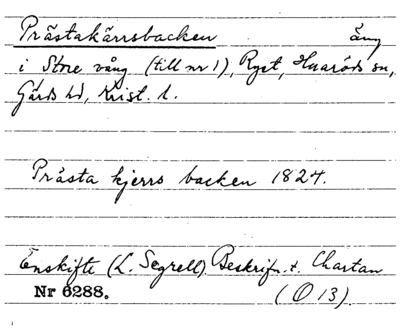 Prästakärrsbacken äng
i Store vång (till nr 1), Ryet, Huaröds sn,
Gärds hd, Krist. l.
Prästa kjerrs backen 1824.
Enskifte (L. Segrell). Beskrifn. t. Chartan
Nr 6288. (O 13).